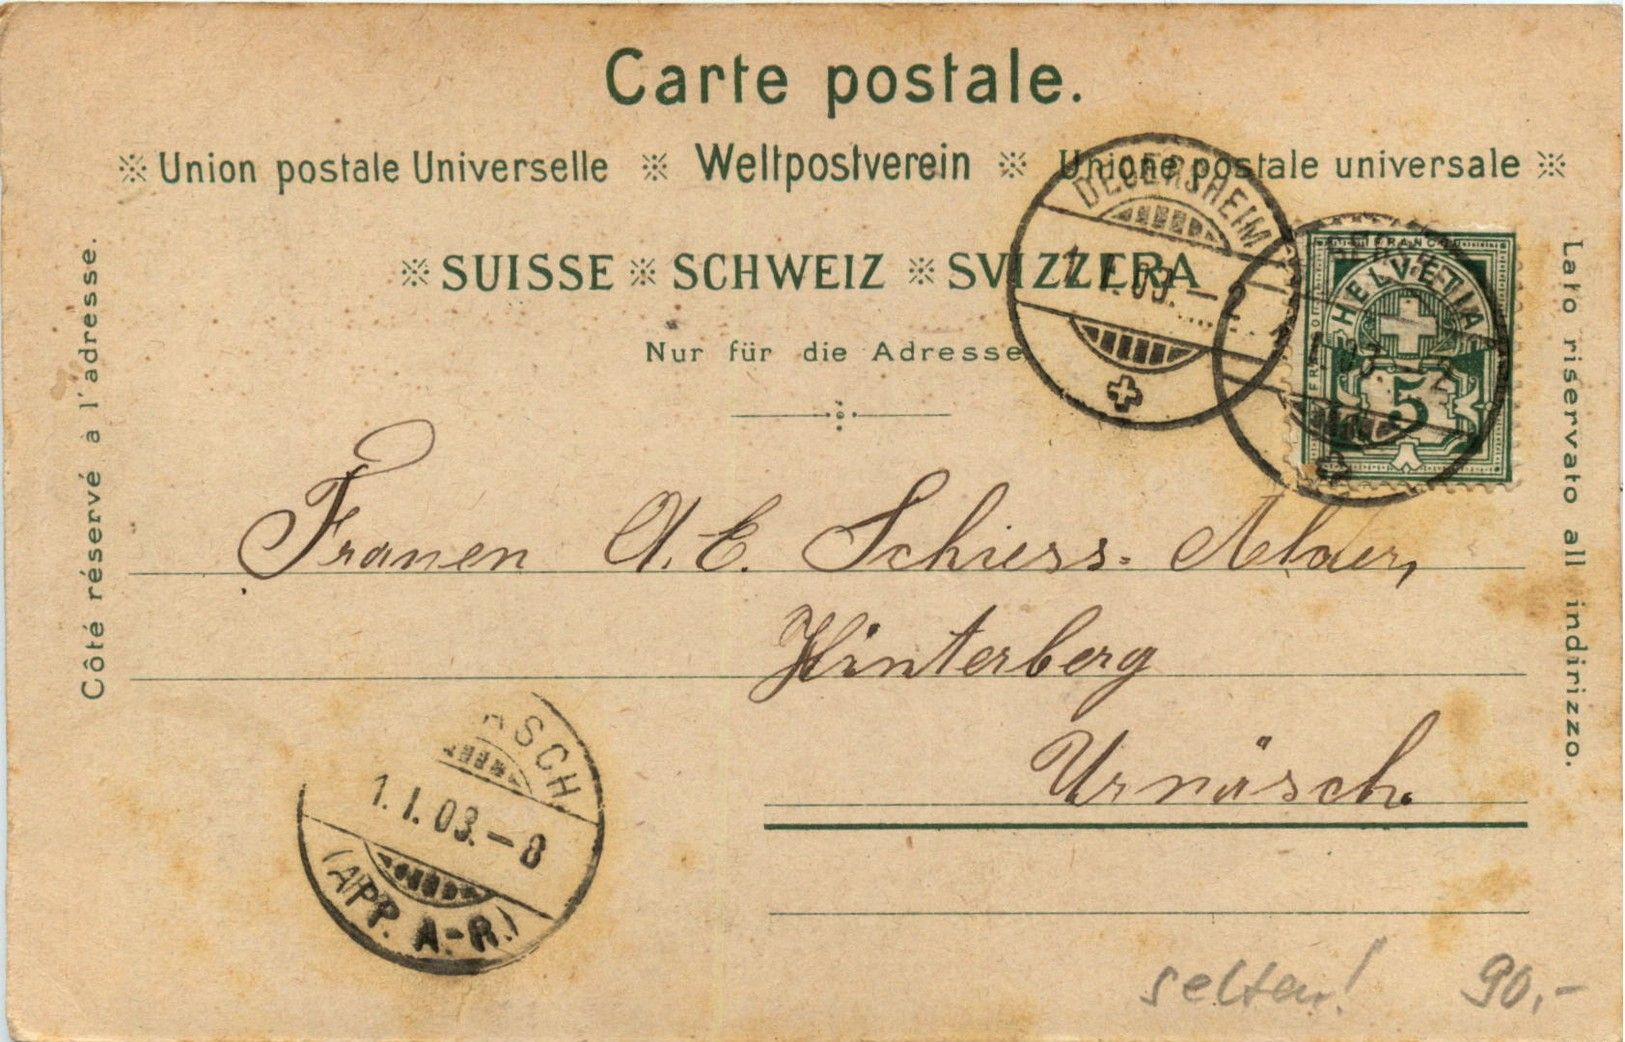 Carte postale.
※ Union postale Universelle ※ Weltpostverein ※ Unione postale universale ※
※ SUISSE ※ SCHWEIZ ※ SVIZZERA
Nur für die Adresse
Côté réservé à l'adresse.
Lato riservato all indirizzo.
DEGERSHEIM
1. I. 03. – 2
FRANCO
HELVETIA
5
Frauen A. E. Schiess-Alder,
Hinterberg
Urnäsch.
ÄSCH.
1. I. 03. – 8
(APP. A.-R.)
selten! 90,-